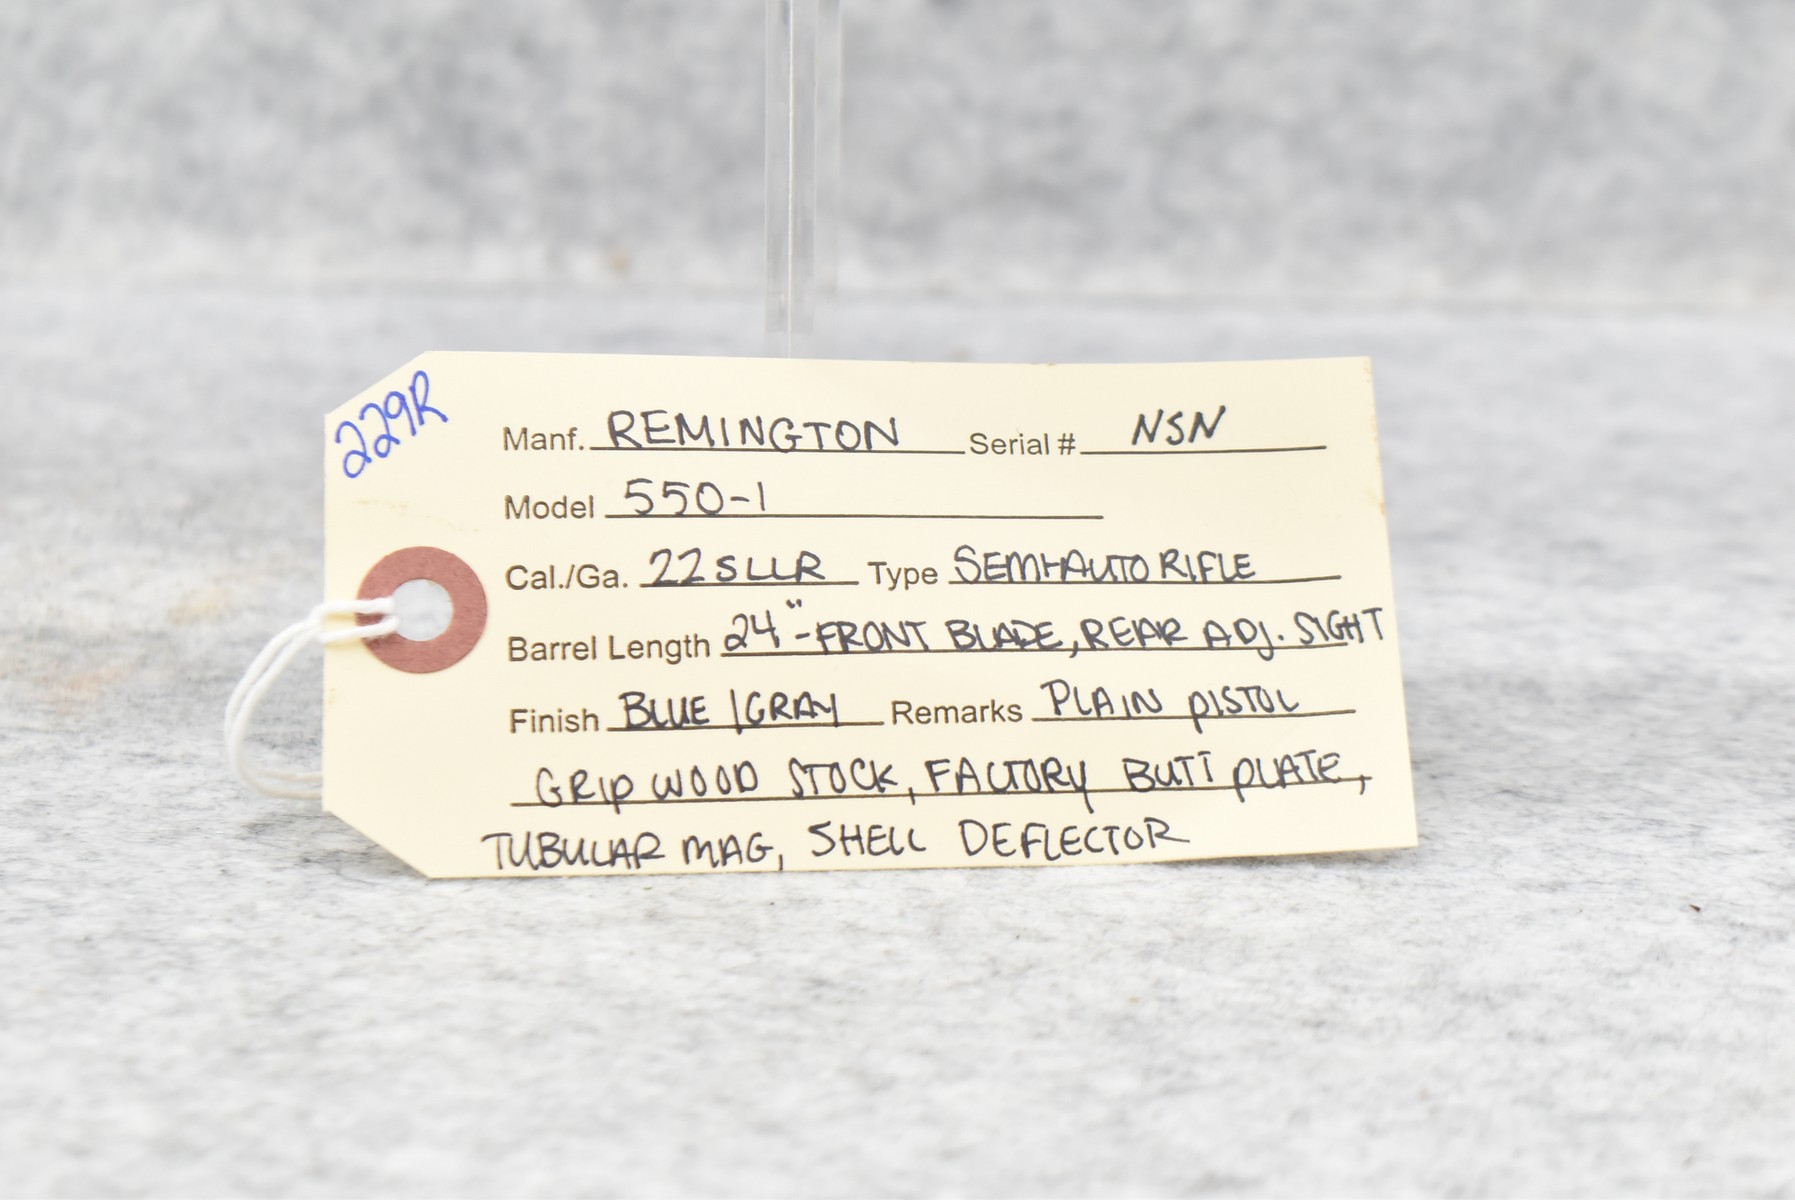 229R
Manf. REMINGTON Serial # NSN
Model 550-1
Cal./Ga. 22 SLLR Type SEMI-AUTO RIFLE
Barrel Length 24"-FRONT BLADE, REAR ADJ. SIGHT
Finish BLUE/GRAY Remarks PLAIN PISTOL
GRIP WOOD STOCK, FACTORY BUTT PLATE,
TUBULAR MAG, SHELL DEFLECTOR